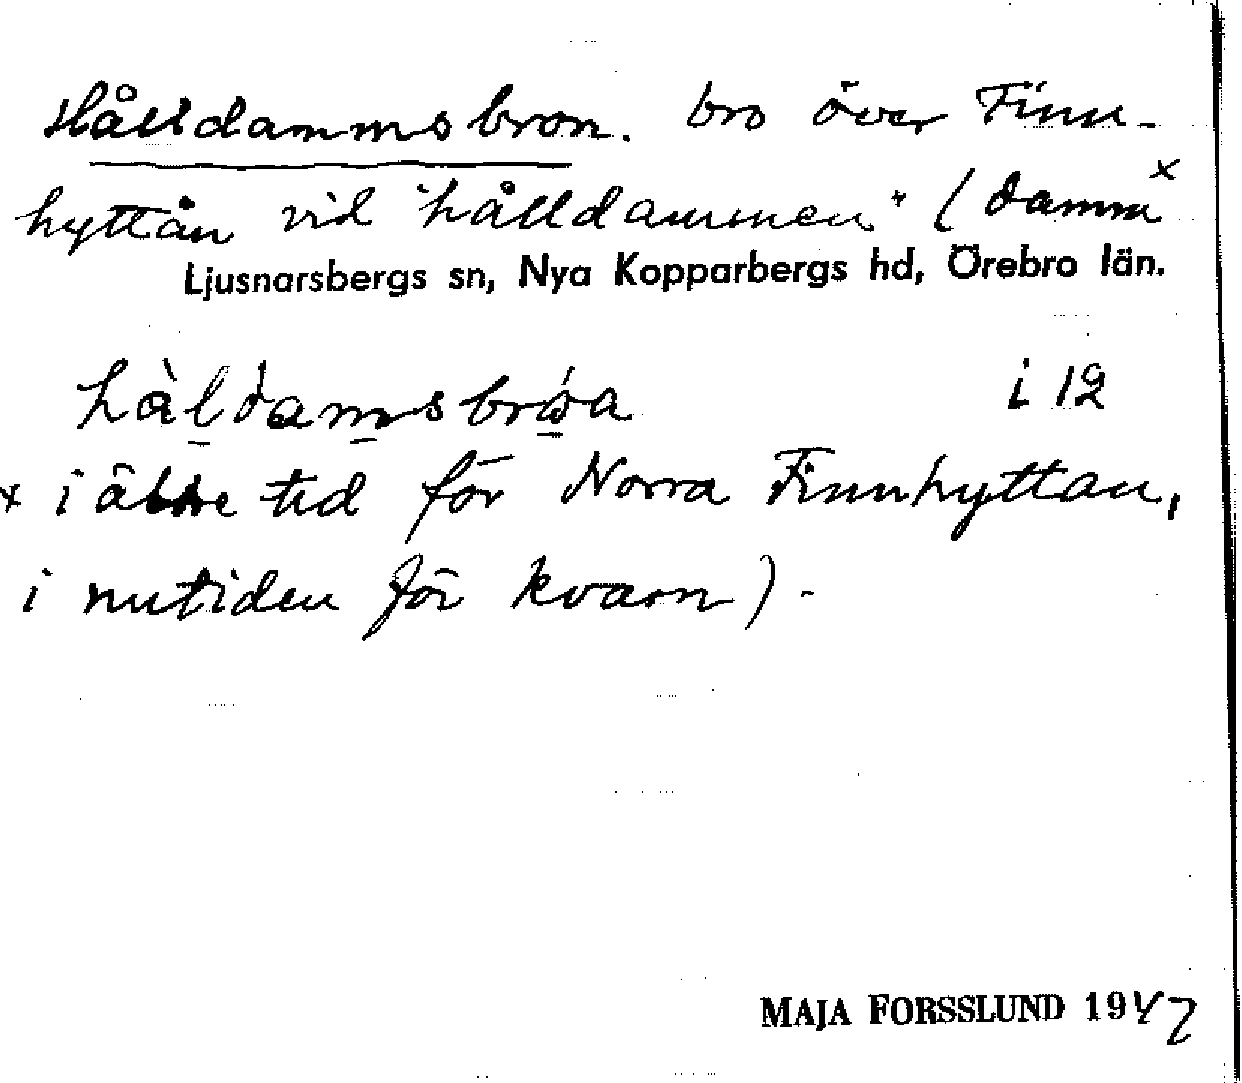 Hålldammsbron. bro över Finn-
hyttån vid "hålldammen" (damm x
Ljusnarsbergs sn, Nya Kopparbergs hd, Örebro län.
i 12
x i äldre tid för Norra Finnhyttan,
i nutiden för kvarn).
MAJA FORSSLUND 1947